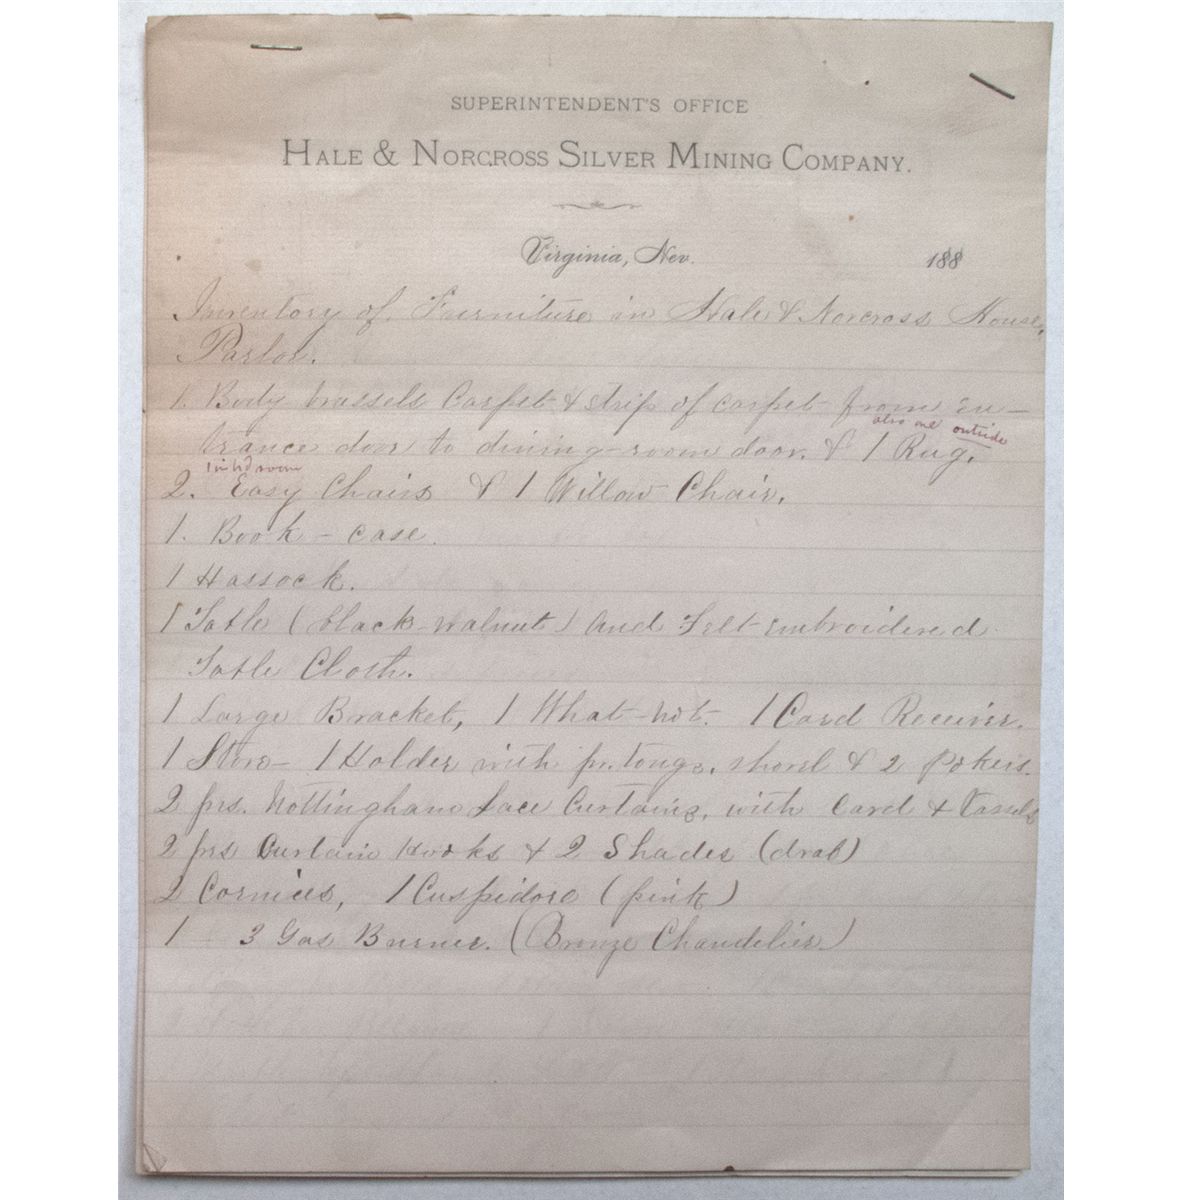 SUPERINTENDENT'S OFFICE
HALE & NORCROSS SILVER MINING COMPANY.
Virginia, Nev. 188
Inventory of Furniture in Hale & Norcross House,
Parlor.
1. Body brussels Carpet & strip of carpet from en-
also one outside
trance door to dining-room door. & 1 Rug.
1 in bd room
2. Easy Chairs & 1 Willow Chair.
1. Book-case.
1 Hassock.
1 Table (black-walnut) and Felt embroidered
Table Cloth.
1 Large Bracket, 1 What-not. 1 Card Receiver.
1 Stove- 1 Holder with pr. tongs. shovel & 2 Pokers.
2 prs. Nottingham Lace Curtains, with Cord & Tassels
2 prs Curtain Hooks & 2 Shades (drab)
2 Cornices, 1 Cuspidore (pink)
1 - 3 Gas Burner. (Bronze Chandelier)